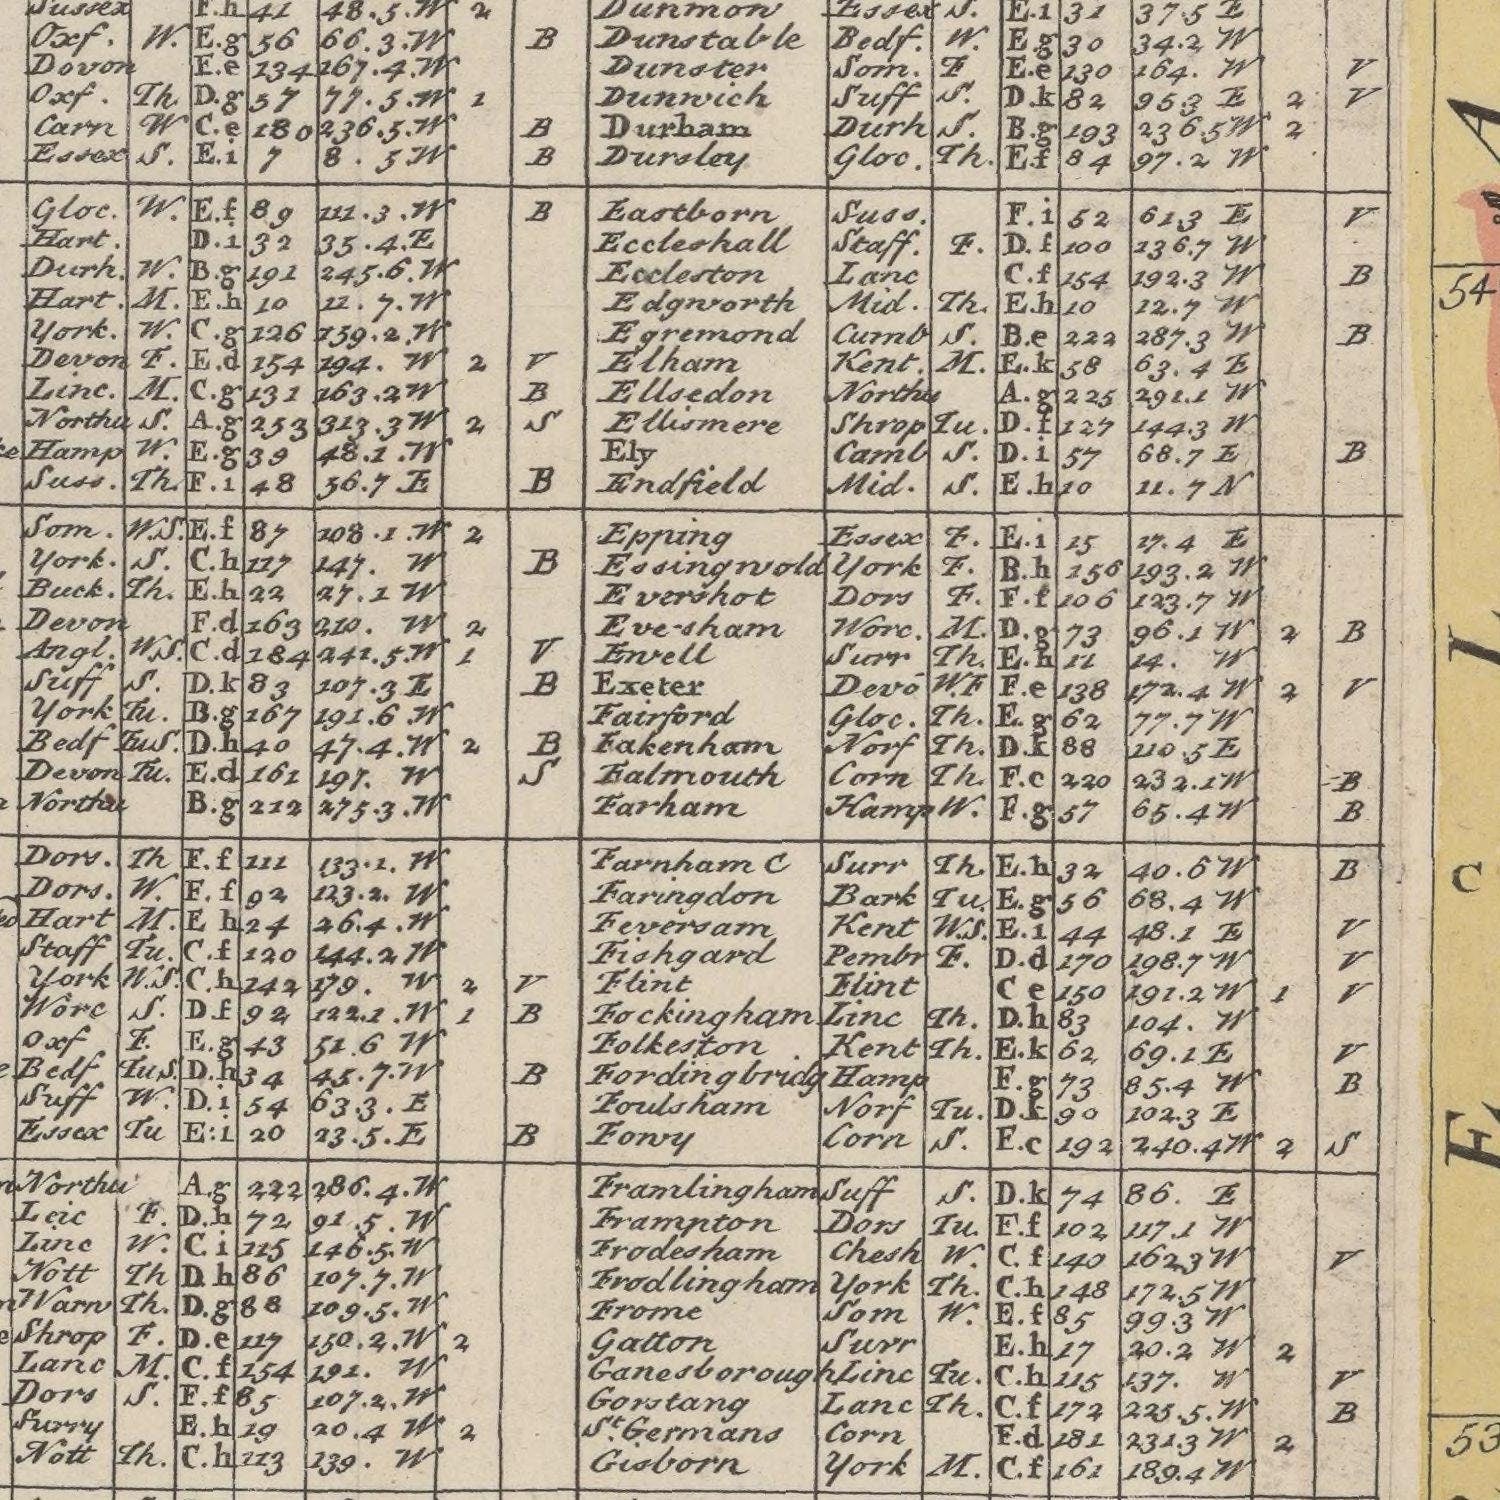 Sussex F.h 41 48.5.W 2 Dunmon Essex S. E.i 31 37.5 E
Oxf. W. E.g 56 66.3.W B Dunstable Bedf. W. E.g 30 34.2 W
Dovon E.e 134 167.4.W Dunster Som. F E.e 130 164. W V
Oxf. Th. D.g 57 77.5.W 1 Dunwich Suff S. D.k 82 95 3 E 2 V
Carn W C.e 180 236.5.W B Durham Durh S. B.g 193 236 5 W 2
Essex S. E.i 7 8.5 W B Dursley Gloc. Th. E.f 84 97.2 W
Gloc. W. E.f 89 111.3.W B Eastborn Suss. F.i 52 61 3 E V
Hart. D.i 32 35.4.E Eccleshall Staff. F. D.f 100 136.7 W
Durh. W. B.g 191 245.6.W Eccleston Lanc C.f 154 192.3 W B
Hart. M. E.h 10 11.7.W Edgworth Mid. Th. E.h 10 12.7 W
York. W. C.g 126 159.2.W Egremond Cumb S. B.e 222 287.3 W B
Devon F. E.d 154 194. W 2 V Elham Kent. M. E.k 58 63.4 E
Linc. M. C.g 131 163.2 W B Ellsedon Northu A.g 225 291.1 W
Northu S. A.g 253 313.3 W 2 S Ellismere Shrop Tu. D.f 127 144.3 W
Hamp W. E.g 39 48.1.W Ely Camb S. D.i 57 68.7 E B
Suss. Th. F.i 48 56.7 E B Endfield Mid. S. E.h 10 11.7 N
Som. W.S. E.f 87 108.1.W 2 Epping Essex F. E.i 15 17.4 E
York. S. C.h 117 147. W B Essingwold York F. B.h 156 193.2 W
Buck. Th. E.h 22 27.1 W Evershot Dors F. F.f 106 123.7 W
Devon F.d 163 210. W 2 Evesham Worc. M. D.g 73 96.1 W 2 B
Angl. W.S. C.d 184 241.5.W 1 V Ewell Surr Th. E.h 11 14. W
Suff S. D.k 83 107.3 E B Exeter Devo W.F F.e 138 172.4 W 2 V
York Tu. B.g 167 191.6.W Fairford Gloc. Th. E.g 62 77.7 W
Bedf Tu.S. D.h 40 47.4.W 2 B Fakenham Norf Th. D.k 88 110 5 E
Devon Tu. E.d 161 197. W S Falmouth Corn Th. F.c 220 232.1 W B
Northu B.g 212 275.3.W Farham Hamp W. F.g 57 65.4 W B
Dors. Th F.f 111 133.1.W Farnham C Surr Th. E.h 32 40.6 W B
Dors. W. F.f 92 123.2.W Faringdon Bark Tu. E.g 56 68.4 W
Hart M. E h 24 26.4.W Feversam Kent W.S. E.i 44 48.1 E V
Staff Tu. C.f 120 144.2.W Fishgard Pembr F. D.d 170 198.7 W V
York W.S. C.h 142 179. W 2 V Flint Flint C e 150 191.2 W 1 V
Worc S. D.f 92 122.1.W 1 B Fockingham Linc Th. D.h 83 104. W
Oxf F. E.g 43 51.6 W Folkeston Kent Th. E.k 62 69.1 E V
Bedf Tu.S. D.h 34 45.7.W B Fordingbridg Hamp F.g 73 85.4 W B
Suff W. D.i 54 63 3.E Foulsham Norf Tu. D.k 90 102.3 E
Essex Tu E.i 20 23.5.E B Fowy Corn S. E.c 192 240.4 W 2 S
Northu A.g 222 286.4.W Framlingham Suff S. D.k 74 86. E
Leic F. D.h 72 91.5.W Frampton Dors Tu. F.f 102 117.1 W
Linc W. C.i 115 146.5.W Frodesham Chesh W. C.f 140 162 3 W V
Nott Th D.h 86 107.7.W Frodlingham York Th. C.h 148 172.5 W
Warw Th. D.g 88 109.5.W Frome Som W. E.f 85 99 3 W
Shrop F. D.e 117 150.2.W 2 Gatton Surr E.h 17 20.2 W 2
Lanc M. C.f 154 191. W Ganesborough Linc Tu. C.h 115 137. W V
Dors S. F.f 85 107.2.W Gorstang Lanc Th. C.f 172 225.5.W B
Surry E.h 19 20.4 W 2 St. Germans Corn F.d 181 231 3 W 2
Nott Th. C.h 113 139. W Gisborn York M. C.f 161 189.4 W
54
C
53